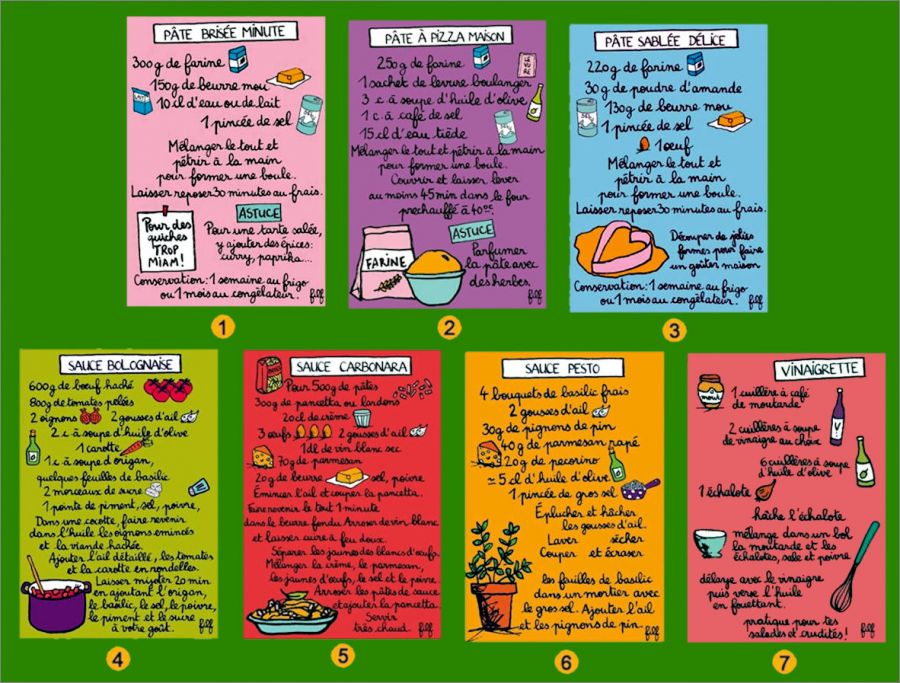 PÂTE BRISÉE MINUTE
300g de farine
150g de beurre mou
LAIT
10 cl d'eau ou de lait
1 pincée de sel
SEL
Mélanger le tout et
pétrir à la main
pour former une boule.
Laisser reposer 30 minutes au frais.
Pour des
quiches
TROP
MIAM!
ASTUCE
Pour une tarte salée,
y ajouter des épices:
curry, paprika...
Conservation: 1 semaine au frigo
ou 1 mois au congélateur.
fiif
1
PÂTE À PIZZA MAISON
250g de farine
LE
VU
RE
1 sachet de levure boulanger
3 c à soupe d'huile d'olive
1 c. à café de sel
SEL
15 cl d'eau tiède
Mélanger le tout et pétrir à la main
pour former une boule.
Couvrir et laisser lever
au moins 45 min dans le four
prechauffé à 40°c.
ASTUCE
FARINE
Parfumer
la pâte avec
des herbes.
fiif
2
PÂTE SABLÉE DÉLICE
220g de farine
30g de poudre d'amande
130g de beurre mou
SEL
1 pincée de sel
1 œuf
Mélanger le tout et
pétrir à la main
pour former une boule.
Laisser reposer 30 minutes au frais.
Découper de jolies
formes pour faire
un goûter maison
Conservation: 1 semaine au frigo
ou 1 mois au congélateur.
fiif
3
SAUCE BOLOGNAISE
600g de bœuf haché
800g de tomates pelées
2 oignons 2 gousses d'ail
2 c à soupe d'huile d'olive
1 carotte
1 c à soupe d'origan,
quelques feuilles de basilic
2 morceaux de sucre
1 pointe de piment, sel, poivre,
Dans une cocotte, faire revenir
dans l'huile les oignons émincés
et la viande hachée.
Ajouter l'ail détaillé, les tomates
et la carotte en rondelles.
Laisser mijoter 20 min
en ajoutant l'origan,
le basilic, le sel, le poivre,
le piment et le sucre
à votre goût.
fiif
4
SAUCE CARBONARA
Pour 500g de pâtes
300g de pancetta ou lardons
20 cl de crème
3 œufs 2 gousses d'ail
1 dl de vin blanc sec
70g de parmesan
20g de beurre sel, poivre
Émincer l'ail et couper la pancetta.
Faire revenir le tout 1 minute
dans le beurre fondu Arroser de vin blanc
et laisser cuire à feu doux.
Séparer les jaunes des blancs d'œufs.
Mélanger la crème, le parmesan,
les jaunes d'œufs, le sel et le poivre.
Arroser les pâtes de sauce
et ajouter la pancetta.
Servir
très chaud.
fiif
5
SAUCE PESTO
4 bouquets de basilic frais
2 gousses d'ail
30g de pignons de pin
40g de parmesan rapé
20g de pecorino
≃ 5 cl d'huile d'olive
1 pincée de gros sel
Éplucher et hâcher
les gousses d'ail.
Laver sécher
Couper et écraser
les feuilles de basilic
dans un mortier avec
le gros sel. Ajouter l'ail
et les pignons de pin.
fiif
6
VINAIGRETTE
mout
1 cuillère à café
de moutarde
V
2 cuillères à soupe
de vinaigre au choix
6 cuillères à soupe
d'huile d'olive
1 échalote
hâche l'échalote
mélange dans un bol
la moutarde et les
échalotes, sale et poivre
délaye avec le vinaigre
puis verse l'huile
en fouettant.
pratique pour tes
salades et crudités!
fiif
7